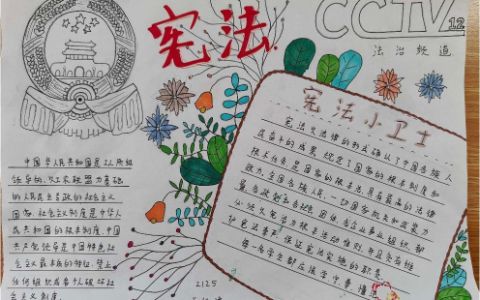 宪法
CCTV12
法治频道
宪法小卫士
中国华人民共和国是工人阶级
领导的,以工农联盟为基础
的人民民主专政的社会主义
国家,社会主义制度是中华人
民共和国的根本制度,中国
共产党领导是中国特色社
会主义最本质的特征,禁止
任何组织或者个人破坏社
会主义制度。
宪法以法律的形式确认了中国各族人
民奋斗的成果,规定了国家的根本制度和
根本任务,是国家的根本法,具有最高的法律
效力,全国各族人民、一切国家机关和武装力
量各政党和各社会团体、各企业事业组织,都
必须以宪法为根本活动准则,并且负有维
护宪法尊严、保证宪法实施的职责
每一名学生都应该学中
2125